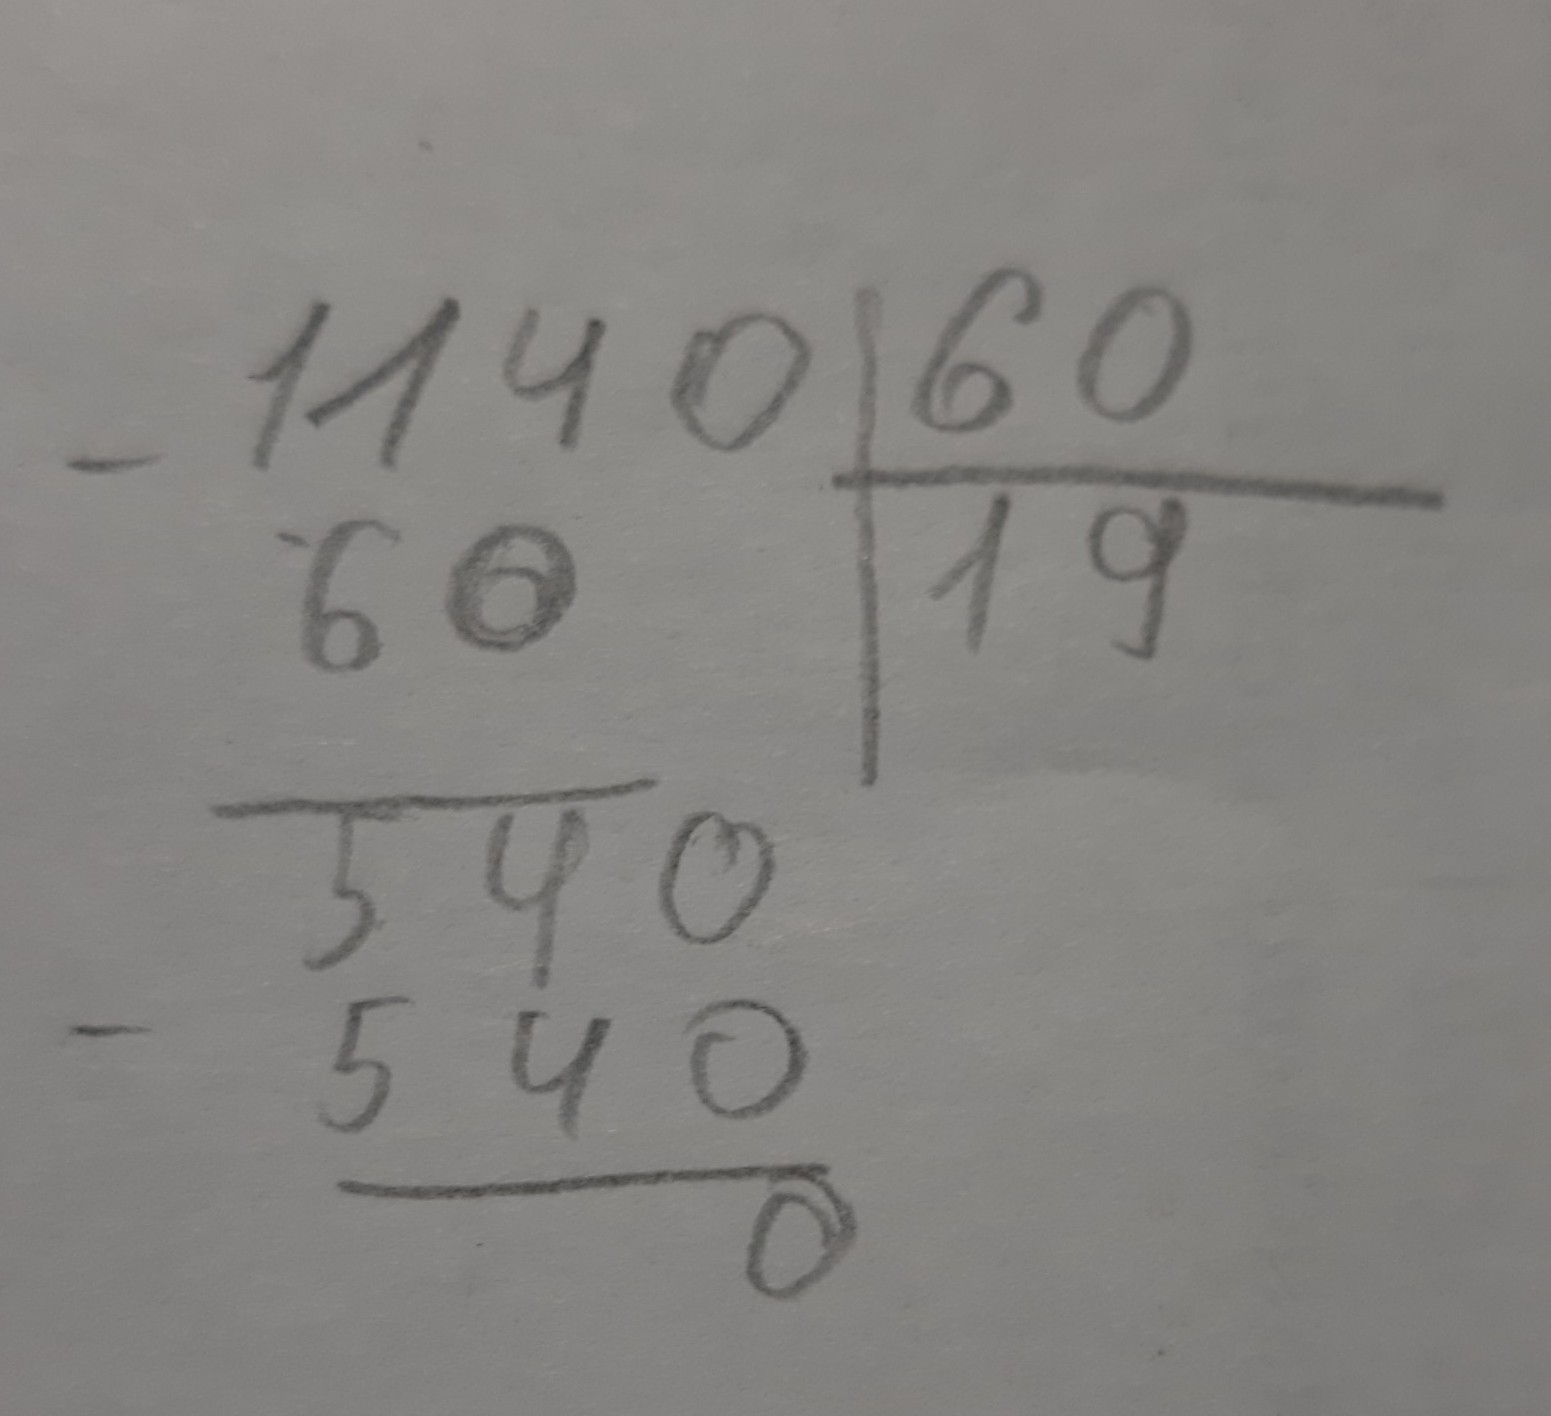 - 1140 | 60
60 | 19
540
- 540
0